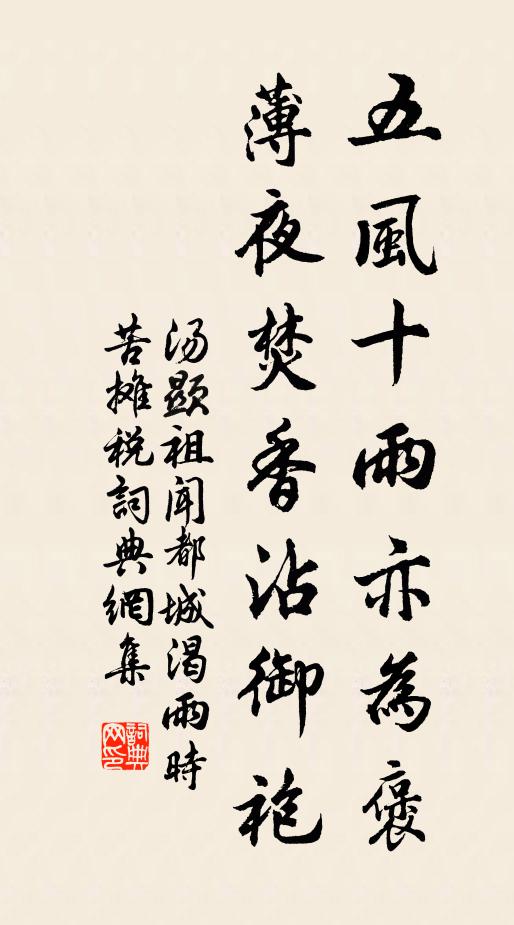 五風十雨亦為褒
薄夜焚香沾御袍
汤顯祖闻都城渴雨時
苦攤税詞典網集
詞典网印